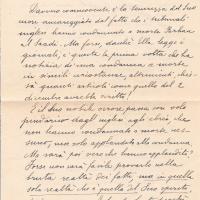 commovente è la tenerezza del Suo
cuore amareggiato dal fatto che i tribunali
inglesi hanno condannato a morte Farhan
el Saadi. Ma forse, dacché Ella legge i
giornali, è questa la prima volta che ha
notizia di una condanna a morte
in simili circostanze, altrimenti, chis-
sà quanti articoli come quello del 2
dicembre avrebbe scritto.
E il Suo nobile orrore passa con volo
pindarico dagli inglesi agli ebrei che
non hanno condannato a morte nes-
suno, ma solo applaudito alla condanna.
Ma sarà poi vero che hanno applaudito?
Forse non sarà facile provarlo nella
brutta realtà dei fatti, ma in quella
sola realtà che è quella del Suo